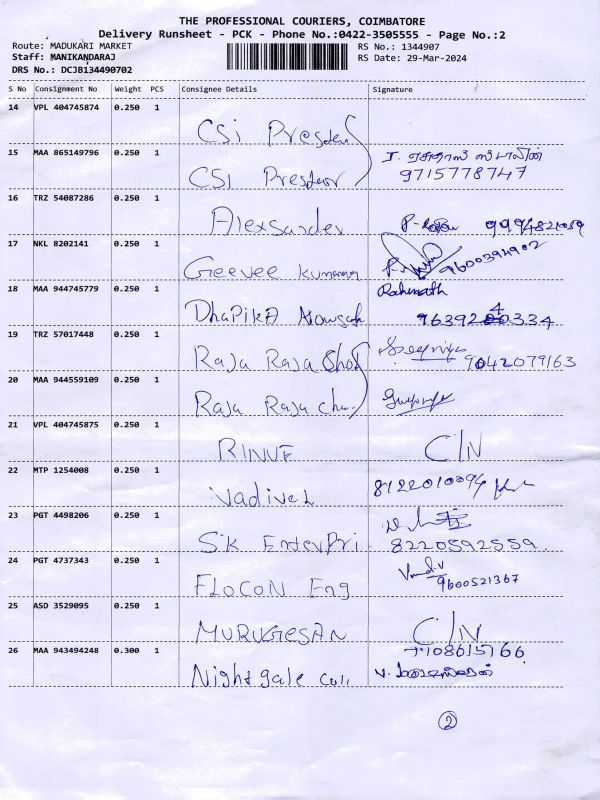 THE PROFESSIONAL COURIERS, COIMBATORE
Delivery Runsheet - PCK - Phone No.:0422-3505555 - Page No.:2
Route: MADUKARI MARKET RS No.: 1344907
Staff: MANIKANDARAJ RS Date: 29-Mar-2024
DRS No.: DCJB134490702
S No Consignment No Weight PCS Consignee Details Signature
14 VPL 404745874 0.250 1
CSi
15 MAA 865149796 0.250 1
CSI 9715778747
16 TRZ 54087286 0.250 1
Alexsander 9994821059
17 NKL 8202141 0.250 1
Geevee 9600394902
18 MAA 944745779 0.250 1 Rahmath
Dhapika
19 TRZ 57017448 0.250 1
Raja Raja 9042079163
20 MAA 944559109 0.250 1
Raja Raja
21 VPL 404745875 0.250 1
C/N
22 MTP 1254008 0.250 1
Vadivel 8122010094
23 PGT 4498206 0.250 1
SK Enterpri 8220592559
24 PGT 4737343 0.250 1
FLOCON Eng 9600521367
25 ASD 3529095 0.250 1
MURUGESAN C/N
26 MAA 943494248 0.300 1 7108615166
Nightgale
2